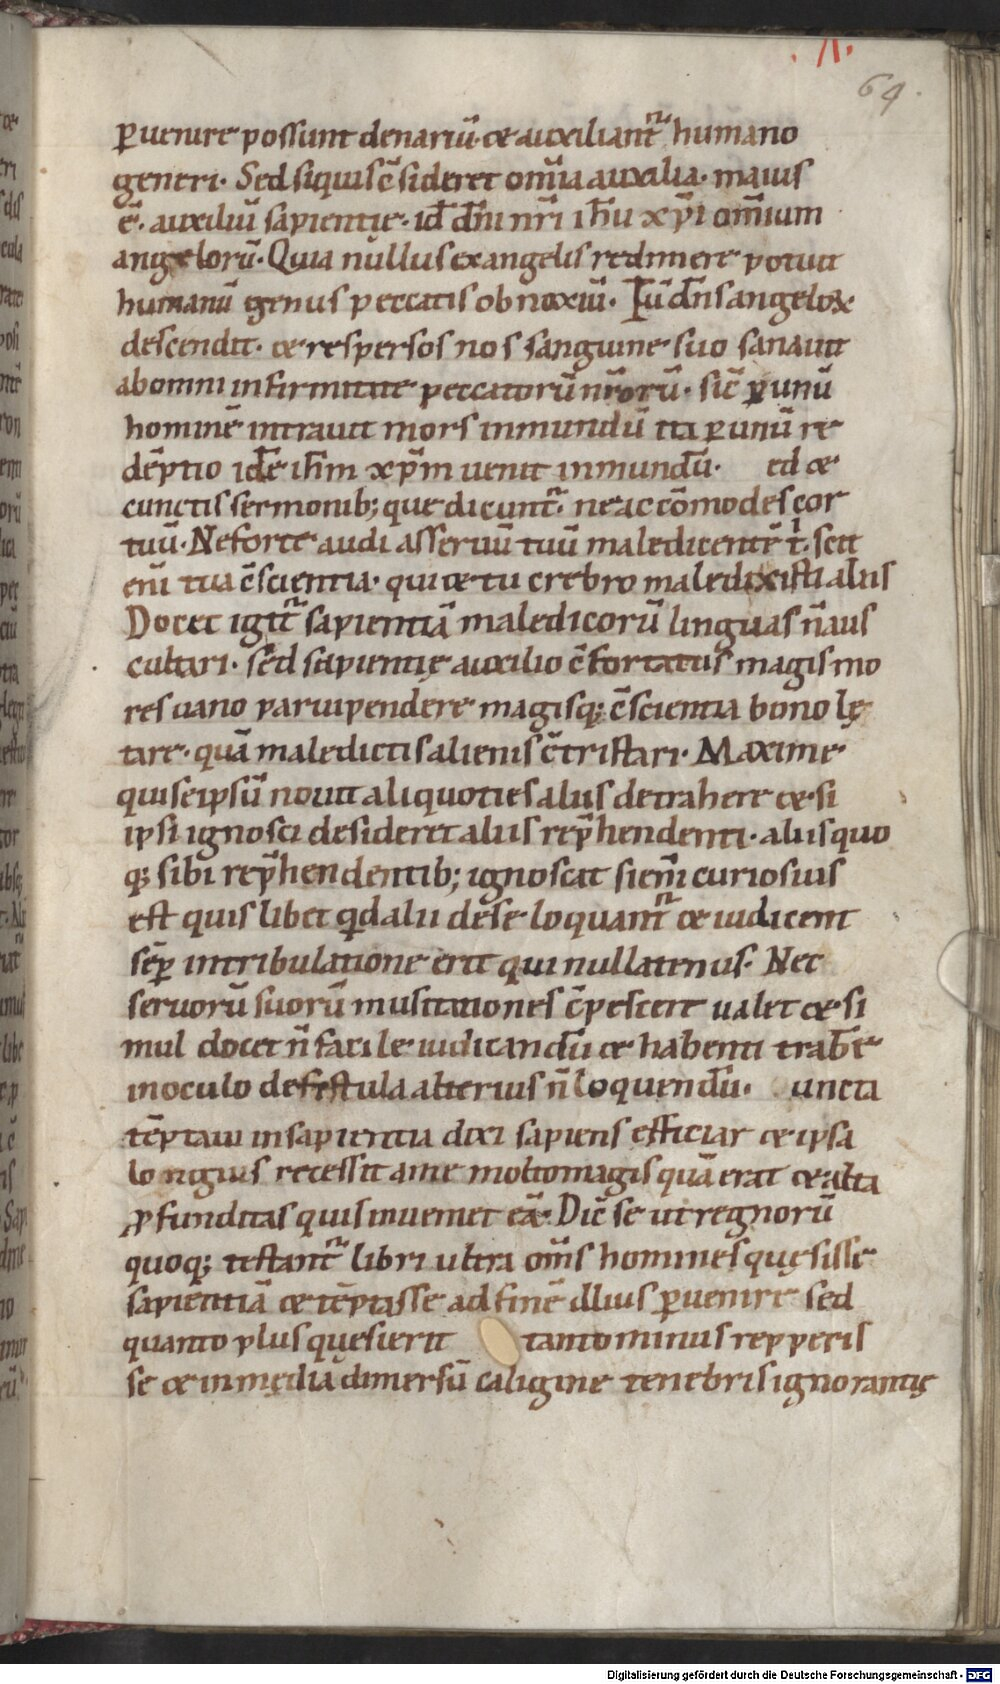 .A.
64.
p̲uenire possunt denariũ. & auxiliant᷑ humano
generi. Sed siquis c̄sideret om̄ia auxilia. maius
ē. auxiliũ sapientie. id dn̄i nr̄i ih̄u xp̄i om̄ium
angelorũ. Quia nullus ex angelis redimere potuit
humanũ genus peccatis obnoxiũ. Tũ dn̄s angeloꝝ
descendit. & respersos nos sanguine suo sanauit
ab omni infirmitate peccatorũ nr̄orũ. sic̄ ꝑ unũ
hominē intrauit mors in mundũ ita ꝑ unũ re
dēptio id ē ih̄m xp̄m uenit in mundũ. ed &
cunctis sermonib; que dicunt᷑. ne accōmodes cor
tuũ. Ne forte audi asseruũ tuũ maledicentē t̄. scit
eni᷑ tua c̄scientia. qui & tu crebro maledixisti aliis
Docet igit᷑ sapientiā maledicorũ linguas n̄ aus
cultari. sed sapientię auxilio c̄fortatus magis mo
res uano paruipendere magisq; c̄scientia bono lę
tare. quā maledictis alienis c̄tristari. Maxime
qui se ipsũ nouit aliquoties aliis detrahere & si
ipsi ignosci desideret aliis rep̄hendenti. aliis quo
q; sibi rep̄hendentib; ignoscat si eni᷑ curiosius
est quis libet qd alii de se loquant᷑ & iudicent
sēꝑ in tribulatione erit qui nullatenus. Nec
seruorũ suorũ musitationes c̄pescere ualet & si
mul docet n̄ facile iudicandũ & habenti trabē
in oculo de festula alterius n̄ loquendũ. uncta
tēptaui in sapientia dixi sapiens efficiar & ipsa
longius recessit a me molto magis quā erat & alta
ꝓfunditas quis inueniet eā. Dic̄ se ut regnorũ
quoq; testant᷑ libri ultra om̄s homines quęsisse
sapientiā & tēptasse ad finē illius ꝑuenire sed
quanto plus quęsierit tanto minus repperis
se & in media dimersũ caligine tenebris ignorantię
Digitalisierung gefördert durch die Deutsche Forschungsgemeinschaft - DFG